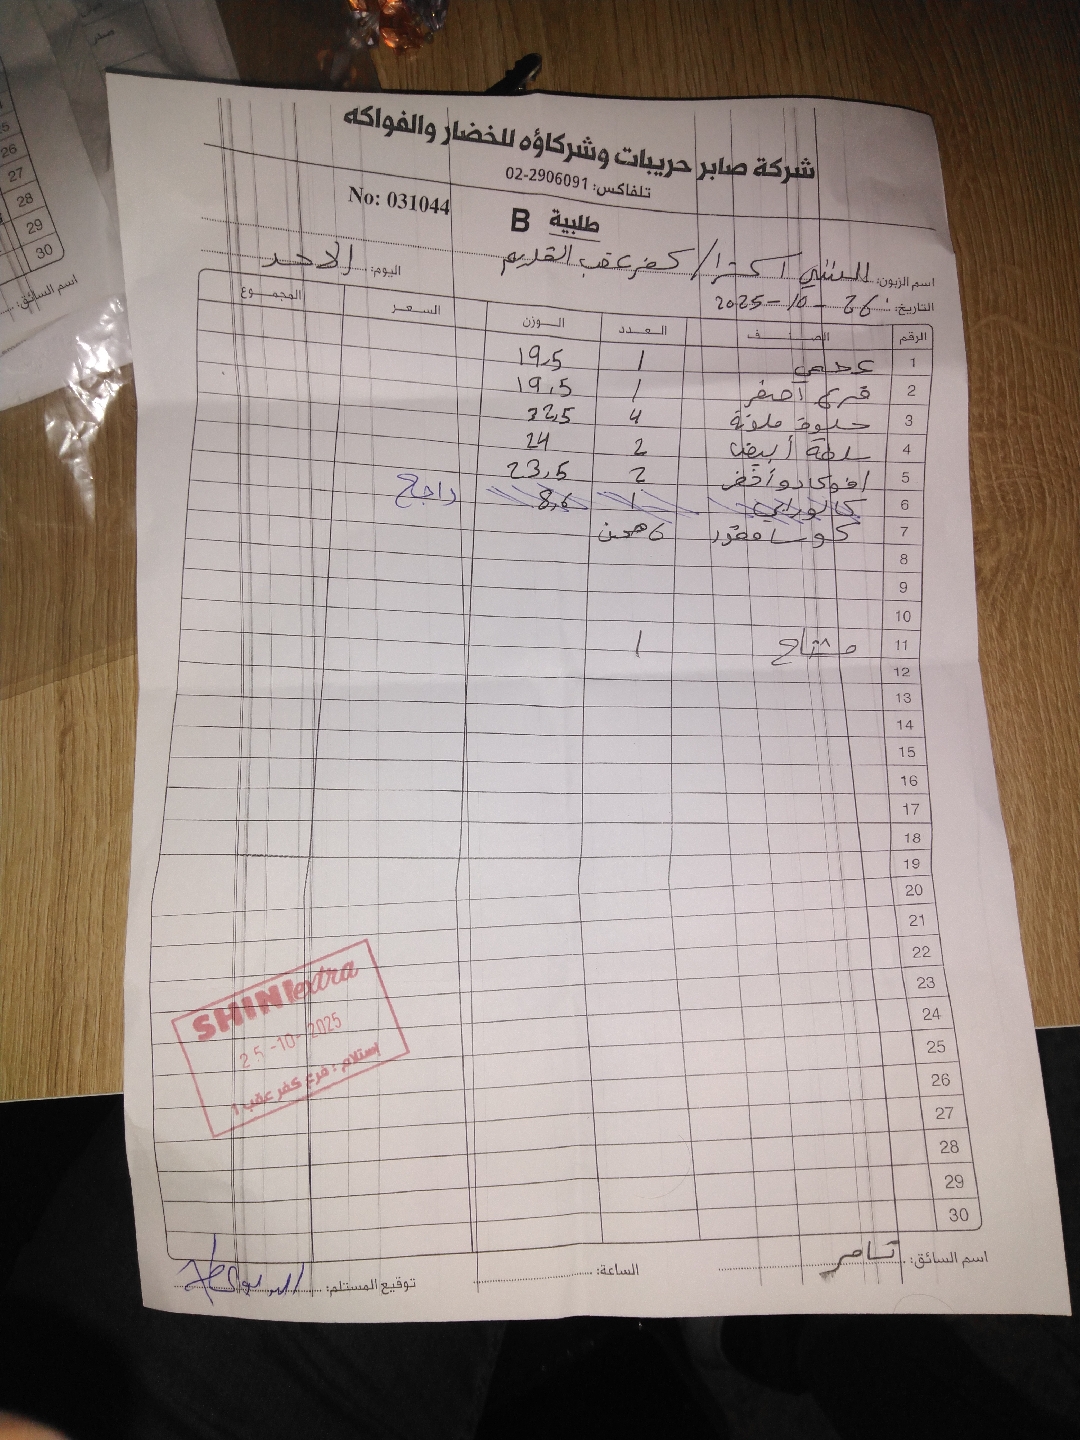 شركة صابر حريبات وشركاؤه للخضار والفواكه
تلفاكس: 02-2906091
No: 031044
طلبية B
اسم الزبون: الشني اكسترا / كفر عقب القديم اليوم: الاحد
التاريخ: 26-10-2025
الرقم الصنف العدد الوزن السعر المجموع
1 عجمي 1 19,5
2 قرع أصفر 1 19,5
3 حلوة ملونة 4 22,5
4 سلطة أبيض 2 24
5 افوكادو أخضر 2 23,5
6 كالورابي 1 8,6 راجع
7 كوسا مقور 6 صحن
8
9
10
11 مشتاح 1
12
13
14
15
16
17
18
19
20
21
22
23
24
25
26
27
28
29
30
SHINI extra
25-10-2025
إستلام: فرع كفر عقب 1
اسم السائق: تامر الساعة: توقيع المستلم:
26
27
28
29
30
اسم السائق: